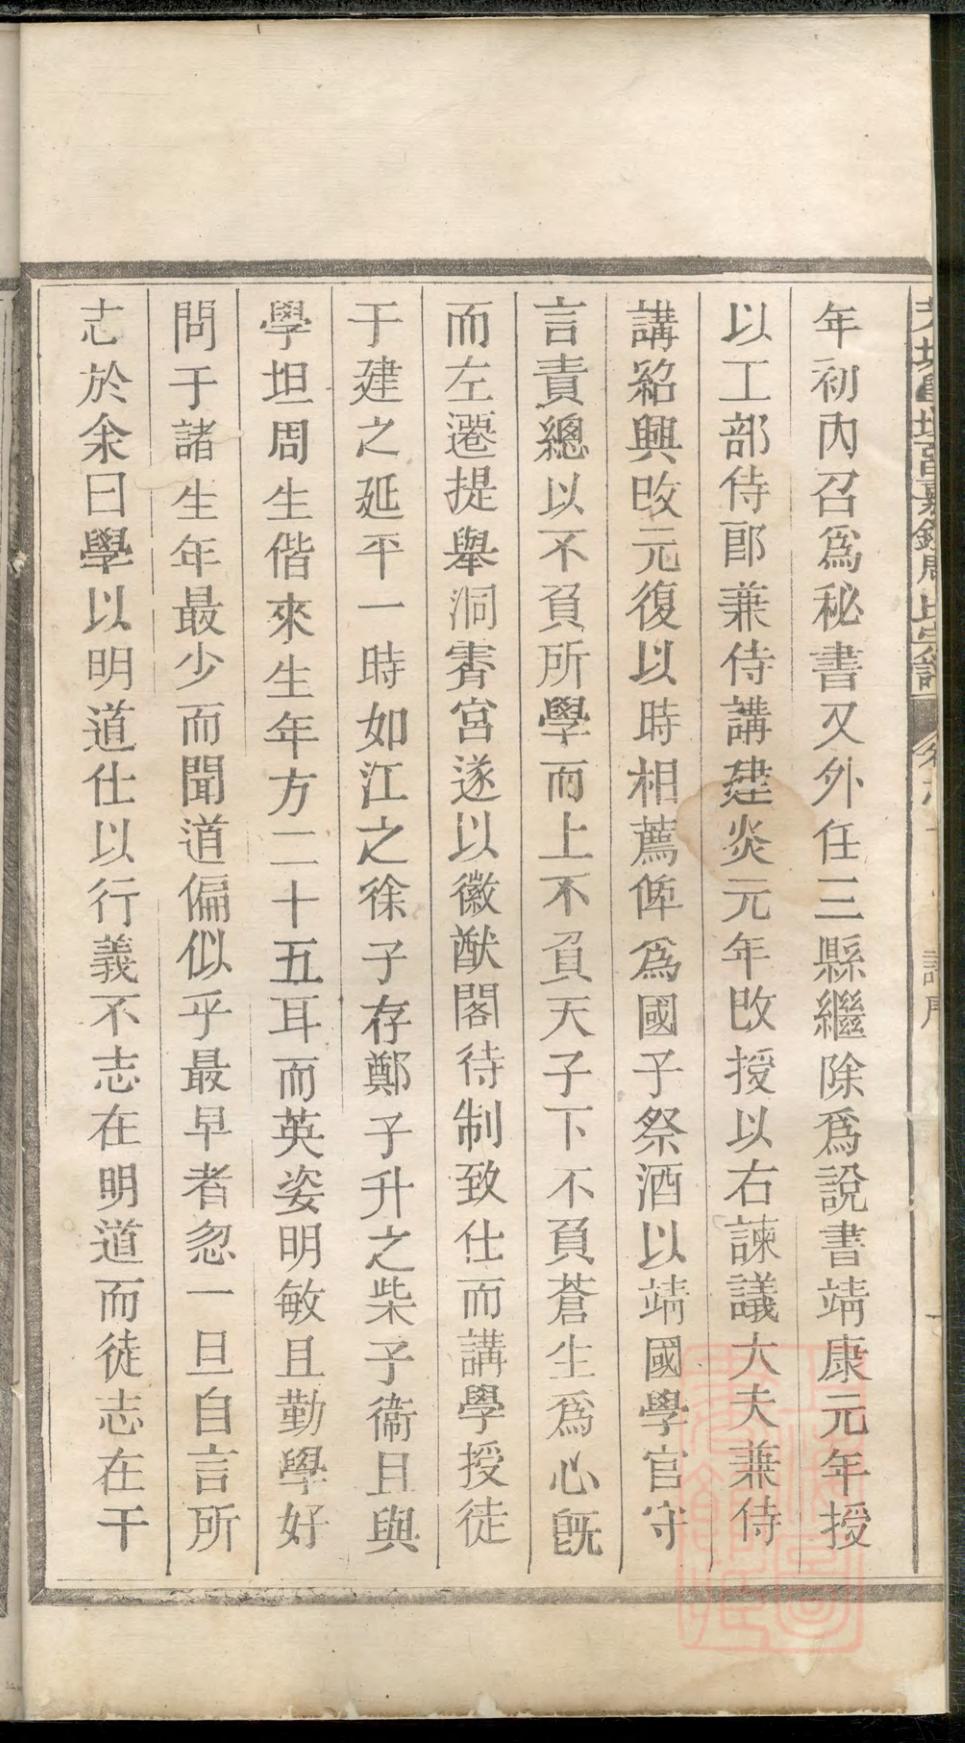 年初內召爲秘書又外任三縣繼除爲說書靖康元年授
以工部侍郎兼侍講建炎元年改授以右諫議大夫兼侍
講紹興改元復以時相薦倅爲國子祭酒以靖國學官守
言責總以不負所學而上不負天子下不負蒼生爲心旣
而左遷提舉洞霄宮遂以徽猷閣待制致仕而講學授徒
于建之延平一時如江之徐子存鄭子升之柴子衞且與
學坦周生偕來生年方二十五耳而英姿明敏且勤學好
問于諸生年最少而聞道偏似乎最早者忽一旦自言所
志於余曰學以明道仕以行義不志在明道而徒志在干